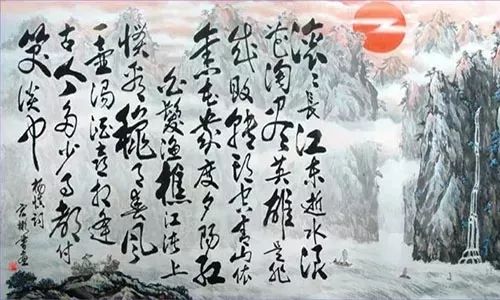 滚滚長江东逝水浪
花淘尽英雄是非
成敗转头空青山依
舊在幾度夕阳红
白髮渔樵江渚上
惯看秋月春风
一壶濁酒喜相逢
古今多少事都付
笑谈中
杨慎词